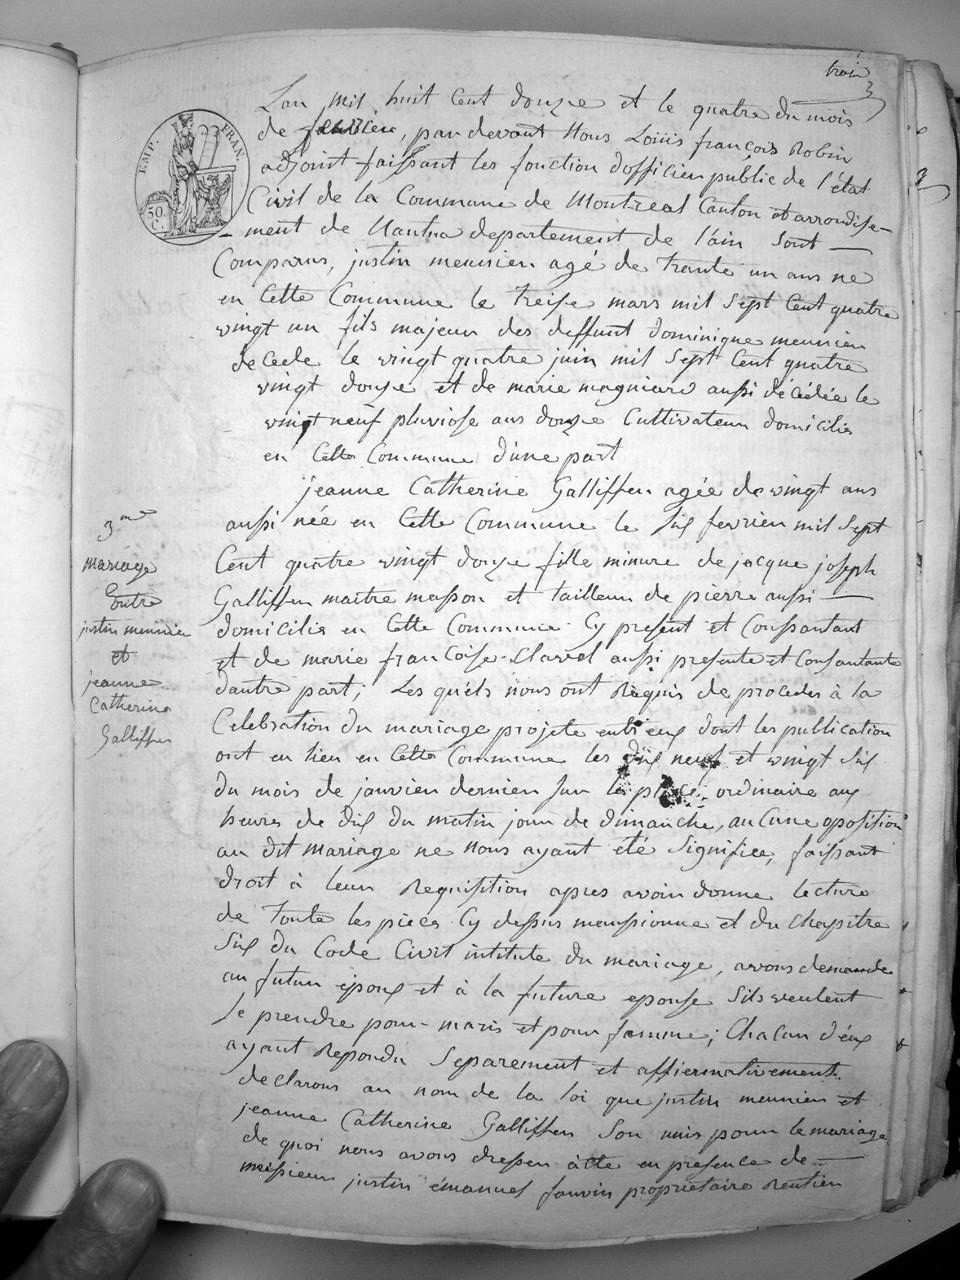 trois
3
EMP. FRAN.
50. C.
Lan mil huit Cent douze et le quatre du mois
de fevrier, par devant Nous Loüis françois Robin
adjoint faissant les fonction d'officier public de l'état
Civil de la Commune de Montreal Canton et arrondisse-
-ment de Nantua departement de l'ain sont
Comparus, justin meunier agé de trante un ans ne
en Cette Commune le treise mars mil sept Cent quatre
vingt un fils majeur des deffunt dominique meunier
decede le vingt quatre juin mil sept Cent quatre
vingt douze et de marie magniard aussi décédée le
vingt neuf pluviose ans douze Cultivateur domicilié
en Cette Commune d'une part
jeanne Catherine Galliffer agée de vingt ans
aussi née en Cette Commune le six fevrier mil sept
Cent quatre vingt douze fille minure de jacque joseph
Galliffer maitre masson et tailleur de pierre aussi
domicilié en Cette Commune Cy present et Consantant
et de marie francoise Clavel aussi presente et Consantante
dautre part; Les quéls nous ont Requis de proceder à la
Celebration du mariage projete entr eux dont les publication
ont eu lieu en Cette Commune les dix neuf et vingt six
du mois de janvier dernier sur la place ordinaire aux
heures de dix du matin jour de dimanche, aucune oposition
au dit mariage ne nous ayant été signifiée, faissant
droit à leur Requisition apres avoir donne lecture
de toute les pieces Cy dessus menssionne et du Chapitre
six du Code Civil intitule du mariage, avons demande
au futur époux et à la future epouse sils veulent
se prendre pour maris et pour famme; Chacun d'eux
ayant Repondu Separement et affiermativement
declarons au nom de la loi que justin meunier et
jeanne Catherine Galliffer son unis pour le mariage
de quoi nous avons dresser acte en presence de
messieur justin émanuel fauvin proprietaire Rentier
3me
mariage
Entre
justin meunier
et
jeanne
Catherine
Galliffer